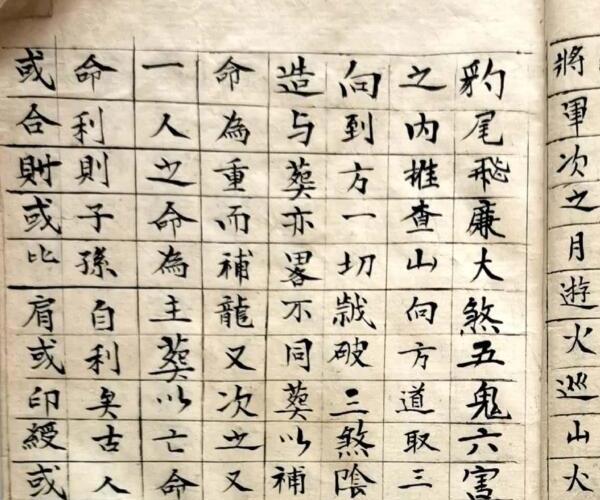 將軍次之月遊火巡山火
豹尾飛廉大煞五鬼六害
之內推查山向方道取三
向到方一切破三煞陰
造与葬亦畧不同葬以補
命為重而補龍又次之又
一人之命為主葬以亡命
命利則子孫自利矣古人
或合財或比肩或印綬或